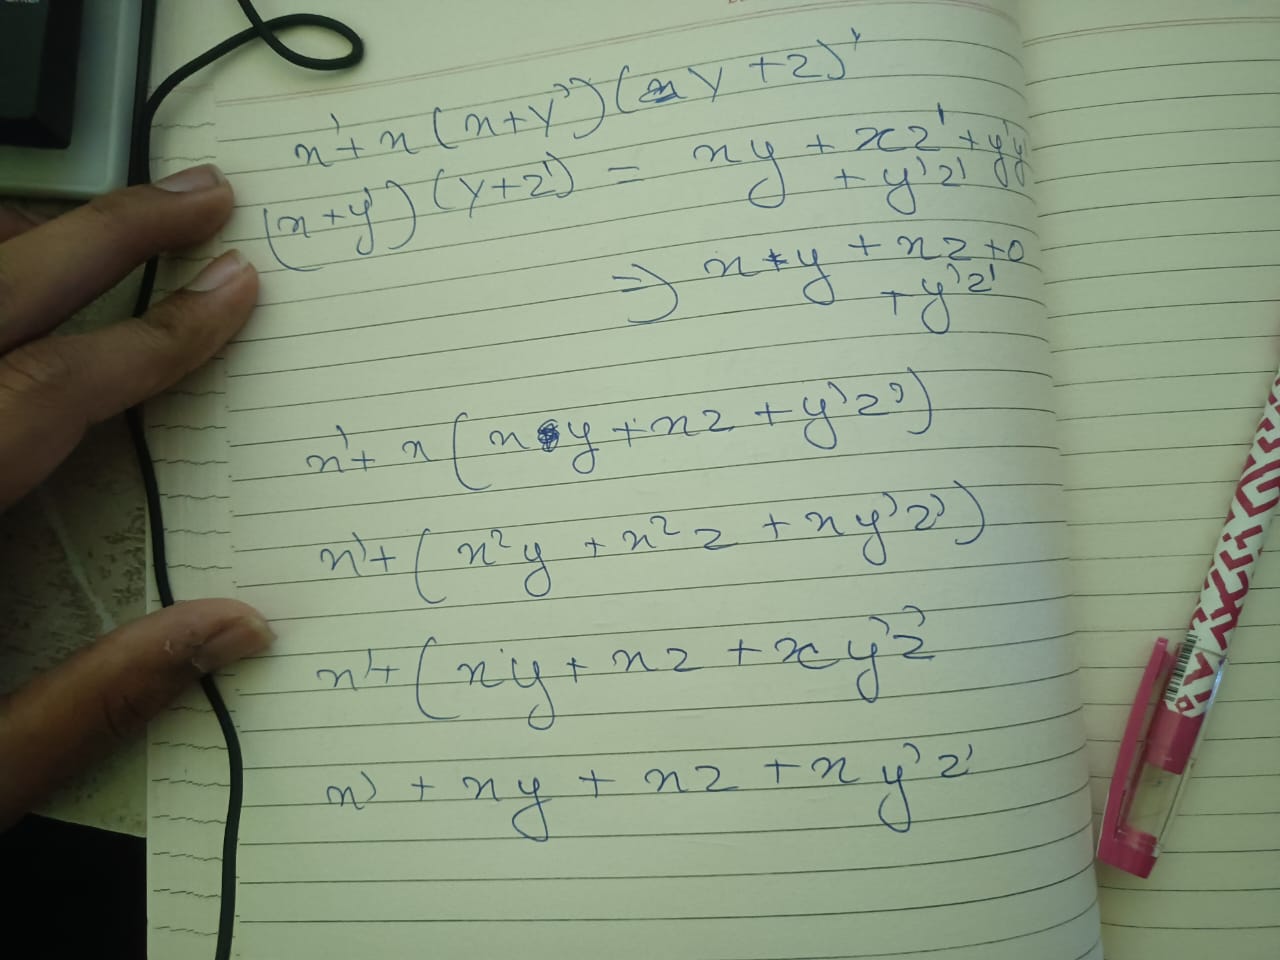 x' + x (x+y') (y+z)'
(x+y') (y+z') = xy + xz' + y'y
+ y'z'
⇒ x·y + xz + 0
+ y'z'
x' + x (x y + xz + y'z')
x' + (x²y + x²z + xy'z')
x' + (xy + xz + xy'z'
x' + xy + xz + xy'z'